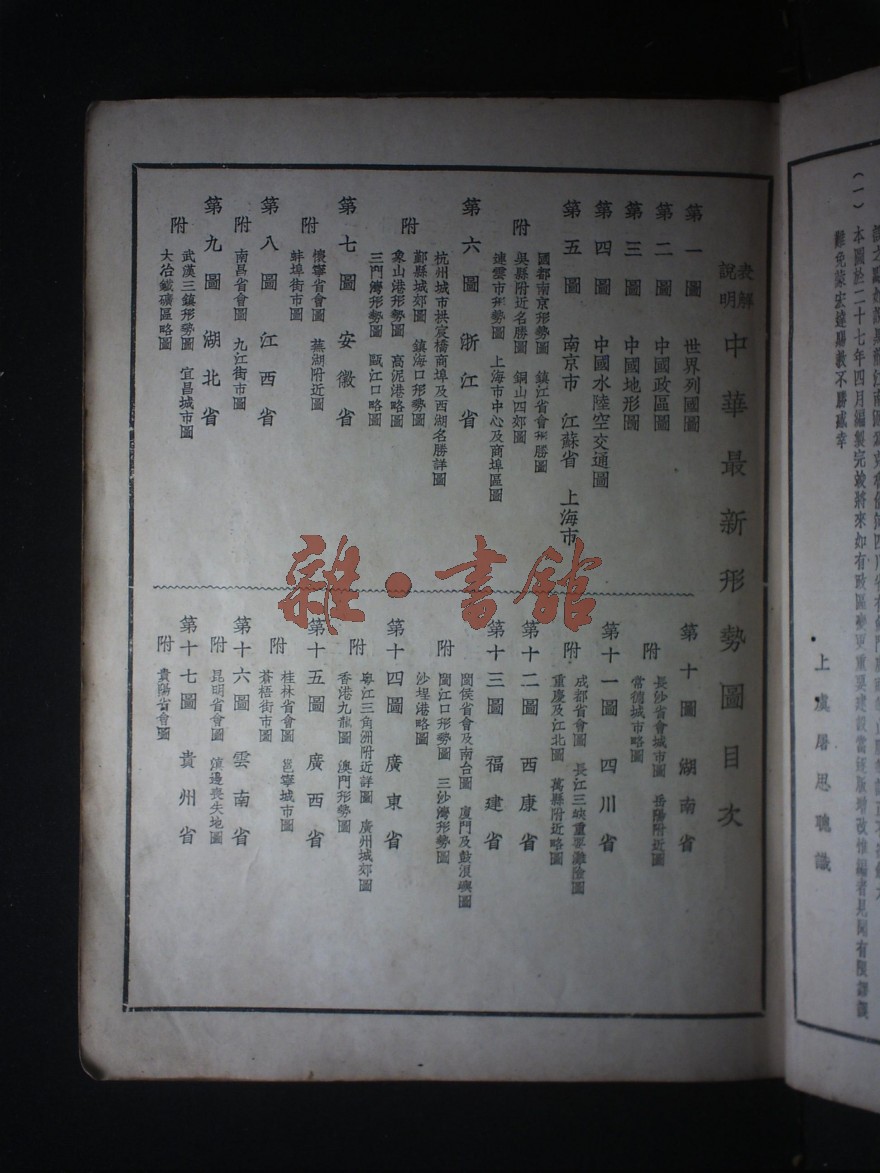 (一)本圖於二十七年四月編製完竣將來如有政區變更重要建設當經版增改惟編者見聞有限謬誤
難免蒙宏達賜教不勝感幸
上虞屠思聰識
表解
說明
中華最新形勢圖目次
第一圖 世界列國圖
第二圖 中國政區圖
第三圖 中國地形圖
第四圖 中國水陸空交通圖
第五圖 南京市 江蘇省 上海市
附 國都南京形勢圖 鎮江省會形勝圖
吳縣附近名勝圖 銅山四郊圖
連雲市形勢圖 上海市中心及商埠區圖
第六圖 浙江省
附 杭州城市拱宸橋商埠及西湖名勝詳圖
鄞縣城郊圖 鎮海口形勢圖
象山港形勢圖 高泥港略圖
三門灣形勢圖 甌江口略圖
第七圖 安徽省
附 懷寧省會圖 蕪湖附近圖
蚌埠街市圖
第八圖 江西省
附 南昌省會圖 九江街市圖
第九圖 湖北省
附 武漢三鎮形勢圖 宜昌城市圖
大冶鐵礦區略圖
第十圖 湖南省
附 長沙省會城市圖 岳陽附近圖
常德城市略圖
第十一圖 四川省
附 成都省會圖 長江三峽重要灘險圖
重慶及江北圖 萬縣附近略圖
第十二圖 西康省
第十三圖 福建省
附 閩侯省會及南台圖 廈門及鼓浪嶼圖
閩江口形勢圖 三沙灣形勢圖
沙埕港略圖
第十四圖 廣東省
附 粵江三角洲附近詳圖 廣州城郊圖
香港九龍圖 澳門形勢圖
第十五圖 廣西省
附 桂林省會圖 邕寧城市圖
蒼梧街市圖
第十六圖 雲南省
附 昆明省會圖 滇邊喪失地圖
第十七圖 貴州省
附 貴陽省會圖
雜·書館